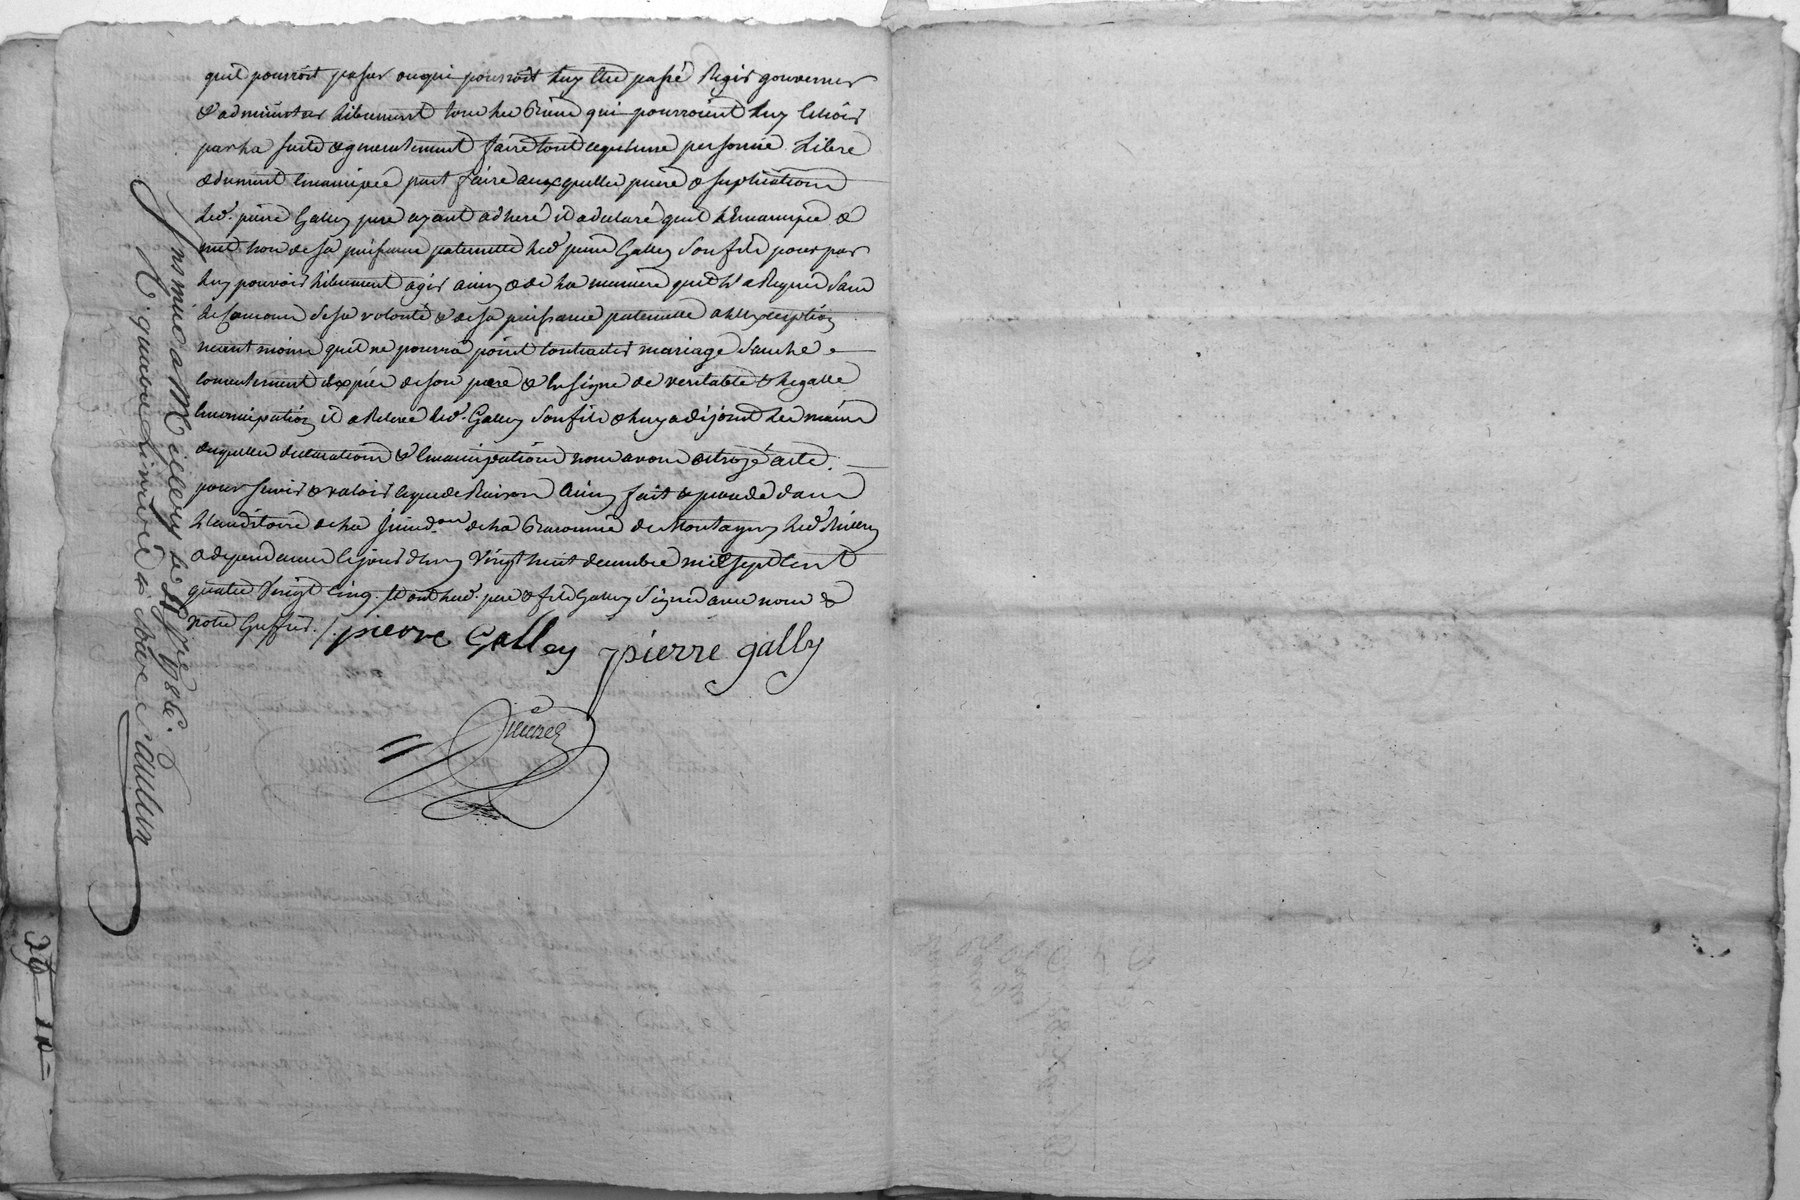 quil pourroit passer ou qui pourroit luy etre passé Regir gouverner
& administrer librement tous les biens qui pourroient luy echoir
par la suite & generalement faire tout ce qu'une personne Libre
& dument emancipée peut faire auxquelles prieres & suplications
led. pierre Galley pere ayant adheré il a declaré quil Emancipe &
met hors de sa puissance paternelle led. pierre Galley son fils pour par
luy pouvoir librement agir ainsy & de la maniere quil l'a Requis sans
le secours de sa volonté & de sa puissance paternelle a lexception
neantmoins quil ne pourra point contracter mariage sans le
consentement exprès de son pere & En signe de veritable & legalle
Emancipation il a Relevé led. Galley son fils & luy a disjoint les mains
desquelles declarations & emancipations nous avons octroyé acte
pour servir & valoir ce que de Raison ainsy fait & prononcé dans
L'auditoire de la Juridon de la Baronnie de Montagny led.
& dependances cejourdhuy Vingt huit decembre mil sept cent
quatre Vingt cinq. Et ont lesd. pere & fils Galley signé avec nous &
notre Greffier ./.
pierre Galley pierre gally
Insinué a Millery le 1786.
R. quatre livres
26